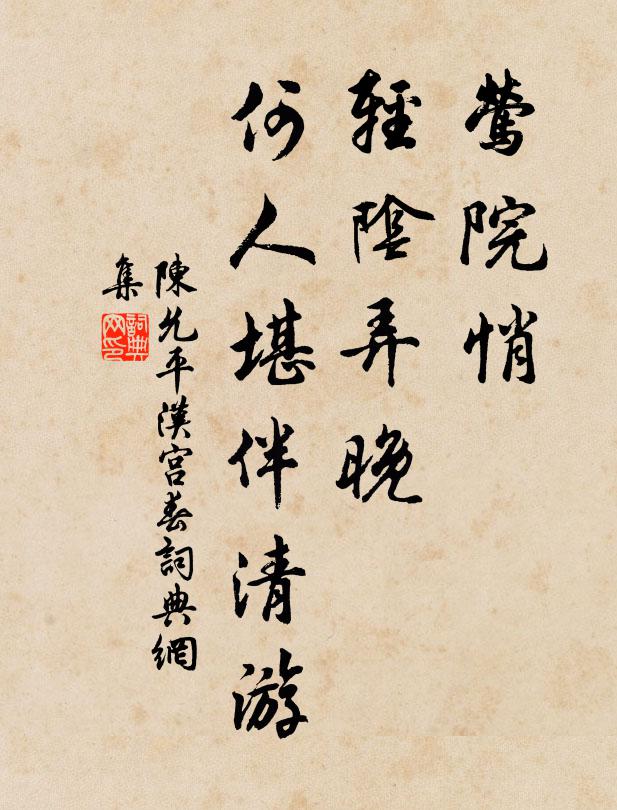 鶯院悄
輕陰弄晚
何人堪伴清游
陳允平漢宮春詞典網
集
詞典
网印